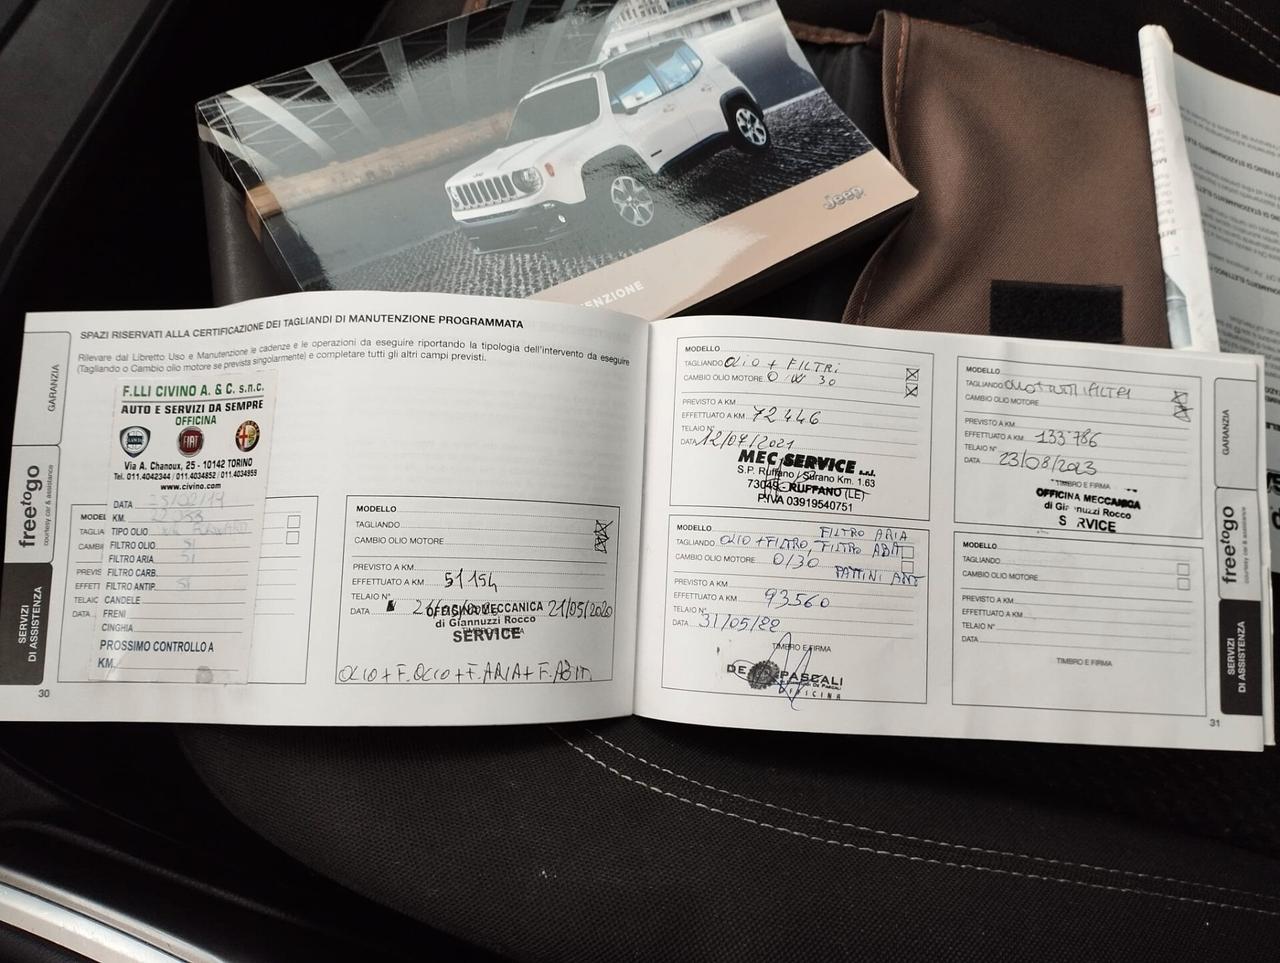 Jeep
SPAZI RISERVATI ALLA CERTIFICAZIONE DEI TAGLIANDI DI MANUTENZIONE PROGRAMMATA
Rilevare dal Libretto Uso e Manutenzione le cadenze e le operazioni da eseguire riportando la tipologia dell'intervento da eseguire
(Tagliando o Cambio olio motore se prevista singolarmente) e completare tutti gli altri campi previsti.
GARANZIA
freetogo
courtesy car & assistance
SERVIZI
DI ASSISTENZA
F.LLI CIVINO A. & C. s.n.c.
AUTO E SERVIZI DA SEMPRE
OFFICINA
LANCIA
FIAT
Via A. Chanoux, 25 - 10142 TORINO
Tel. 011.4042344 / 011.4034852 / 011.4034959
www.civino.com
DATA
KM.
TIPO OLIO
FILTRO OLIO SI
FILTRO ARIA SI
FILTRO CARB.
FILTRO ANTIP. SI
CANDELE
FRENI
CINGHIA
PROSSIMO CONTROLLO A
KM.
30
MODELLO
TAGLIANDO
CAMBIO OLIO MOTORE
PREVISTO A KM
EFFETTUATO A KM 51154
TELAIO N°
DATA 21/05/2020
OFFICINA MECCANICA
di Giannuzzi Rocco
SERVICE
OLIO + F. OLIO + F. ARIA + F. ABIT.
MODELLO
TAGLIANDO OLIO + FILTRI
CAMBIO OLIO MOTORE 0 W 30
PREVISTO A KM
EFFETTUATO A KM 72446
TELAIO N°
DATA 12/07/2021
MEC SERVICE s.r.l.
S.P. Ruffano / Surano Km. 1.63
73049 - RUFFANO (LE)
P.IVA 03919540751
MODELLO FILTRO ARIA
TAGLIANDO OLIO + FILTRO, FILTRO ABIT
CAMBIO OLIO MOTORE 0/30
PATTINI ANT
PREVISTO A KM
EFFETTUATO A KM 93560
TELAIO N°
DATA 31/05/22
TIMBRO E FIRMA
DE PASCALI
OFFICINA
MODELLO
TAGLIANDO
CAMBIO OLIO MOTORE
PREVISTO A KM
EFFETTUATO A KM 133786
TELAIO N°
DATA 23/08/2023
TIMBRO E FIRMA
OFFICINA MECCANICA
di Giannuzzi Rocco
SERVICE
MODELLO
TAGLIANDO
CAMBIO OLIO MOTORE
PREVISTO A KM
EFFETTUATO A KM
TELAIO N°
DATA
TIMBRO E FIRMA
31
GARANZIA
freetogo
courtesy car & assistance
SERVIZI
DI ASSISTENZA